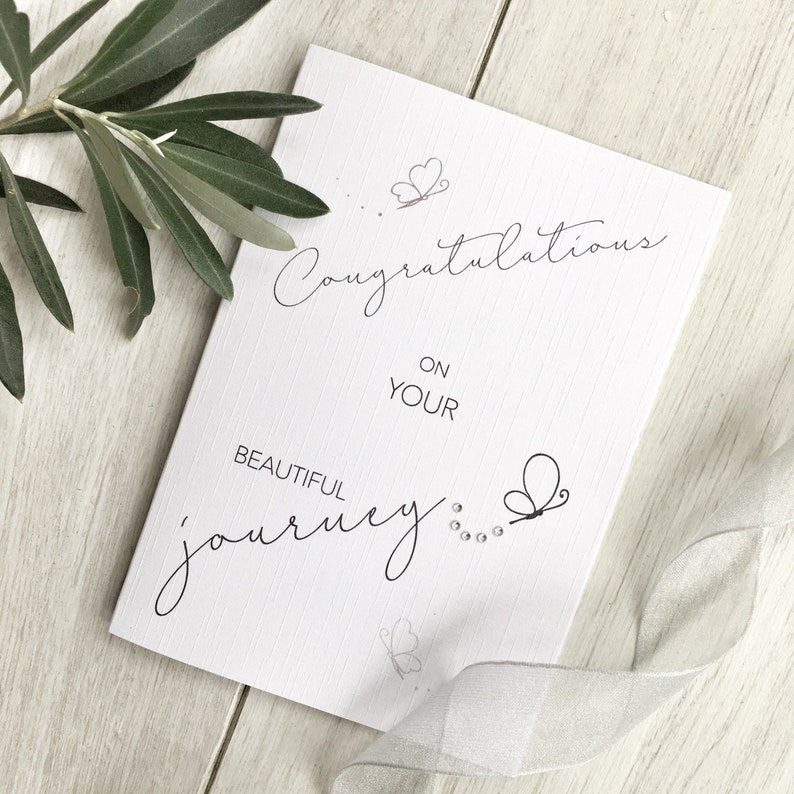 Congratulations
ON
YOUR
BEAUTIFUL
journey